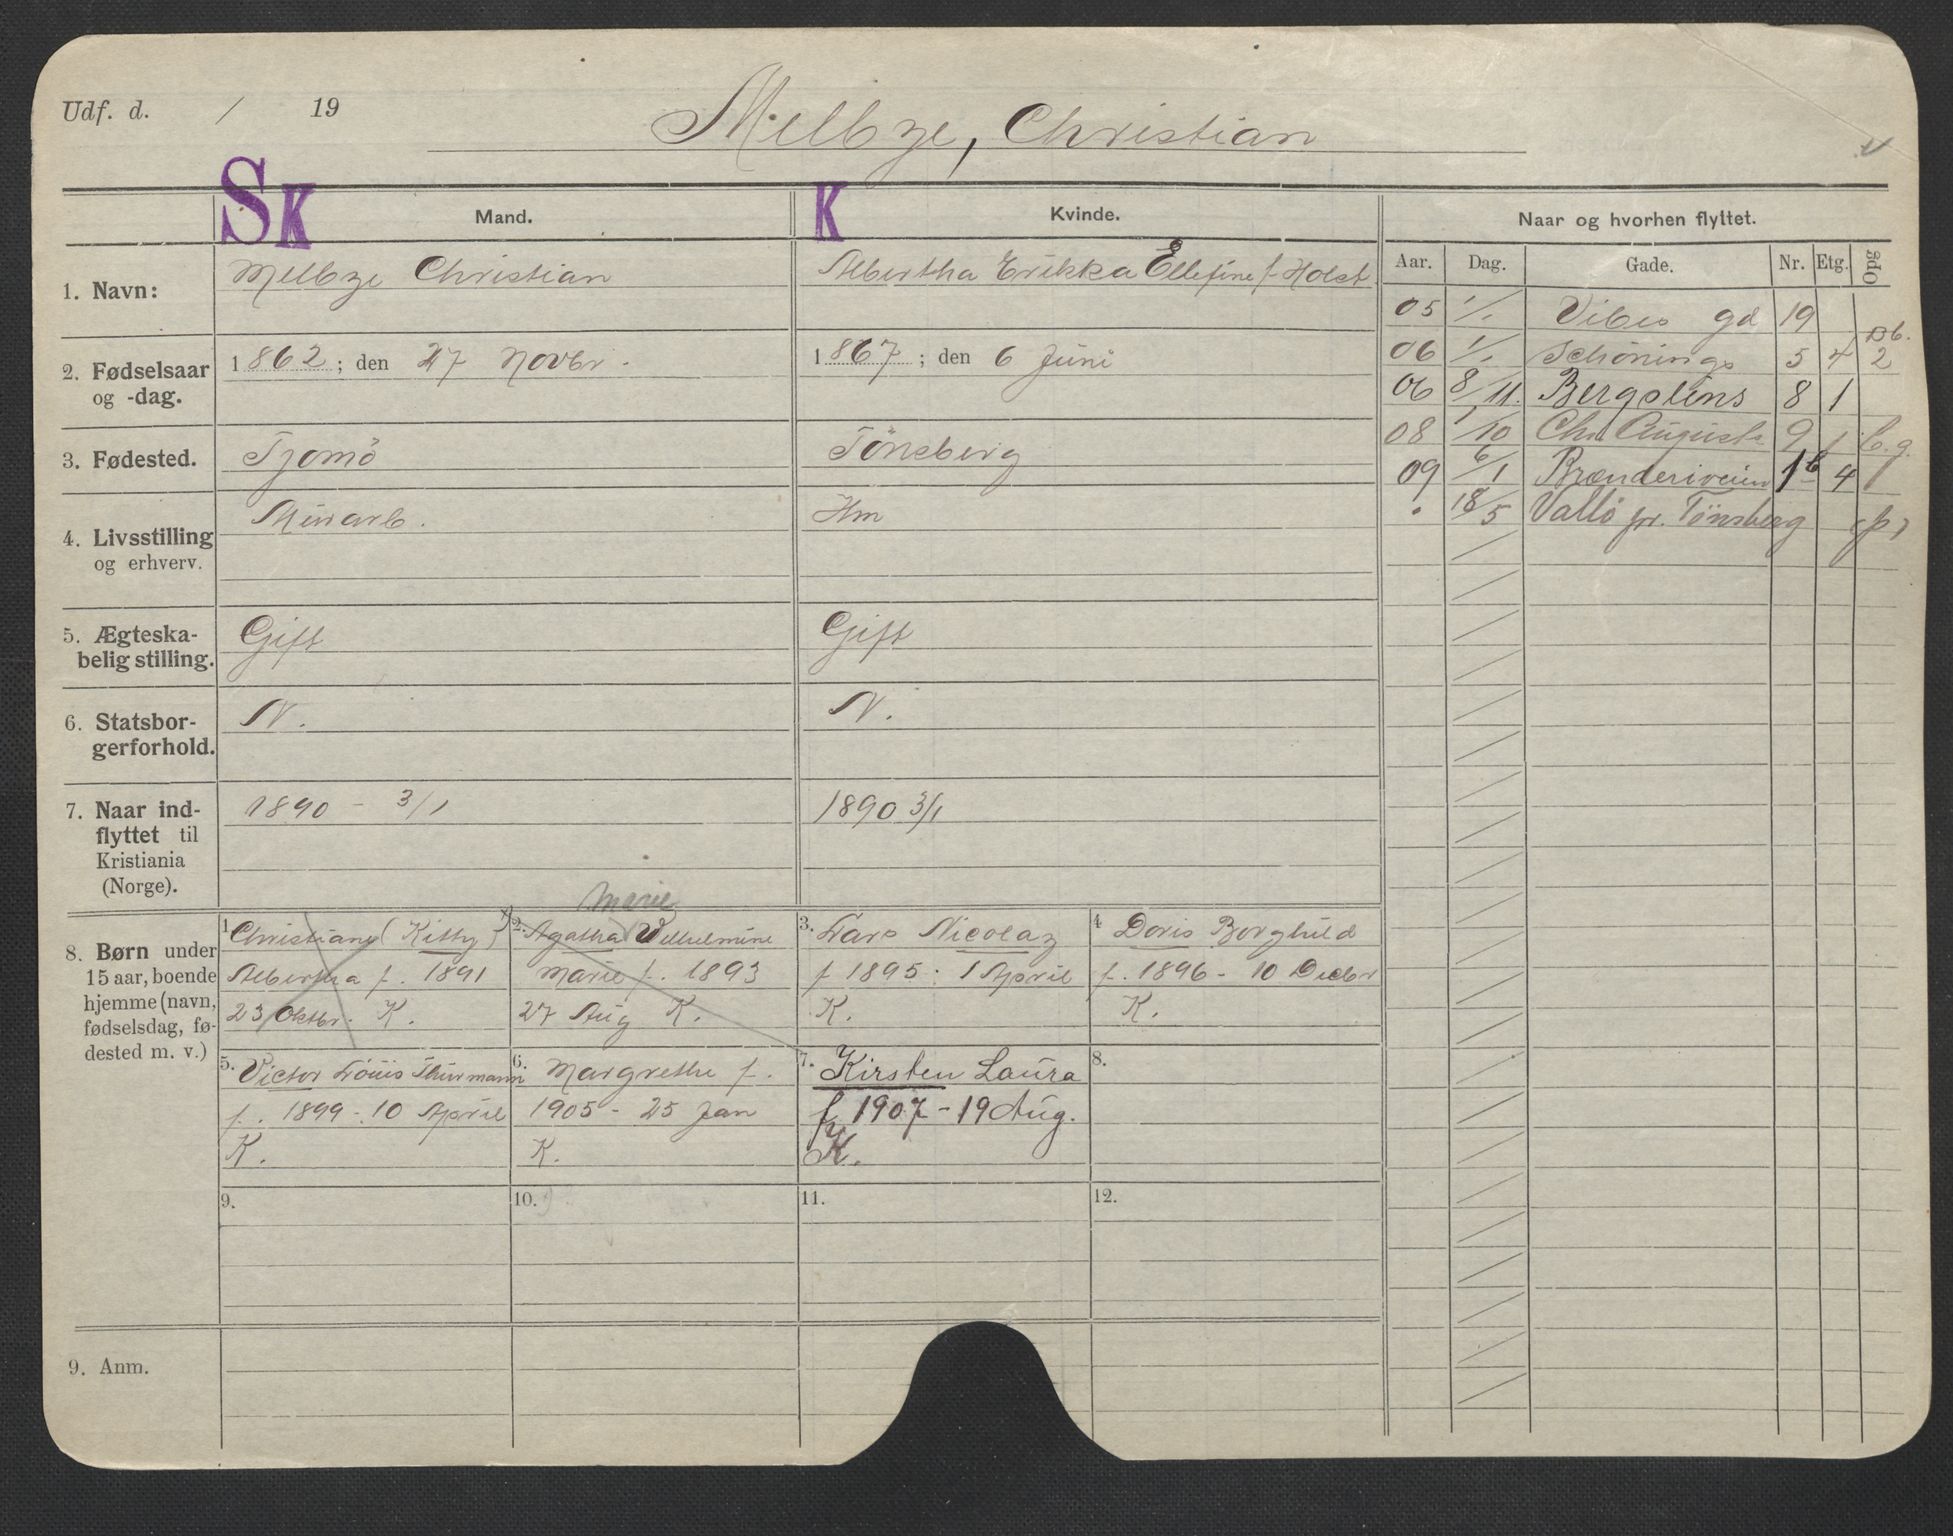 Udf. d. / 19
Melbye, Christian
SK
Mand.
K
Kvinde.
Naar og hvorhen flyttet.
Aar. Dag. Gade. Nr. Etg. Opg
1. Navn:
Melbye Christian
Albertha Erikka Ellefine f. Holst
2. Fødselsaar
og -dag.
1862; den 27 Novbr.
1867; den 6 Juni
3. Fødested.
Tjomö
Tönsberg
4. Livsstilling
og erhverv.
Murarb.
Hm
5. Ægteska-
belig stilling.
Gift
Gift
6. Statsbor-
gerforhold.
N.
N.
7. Naar ind-
flyttet til
Kristiania
(Norge).
1890 - 3/1
1890 3/1
05 1/1 Vibes gd 19
06 1/1 Schönings 5 4 2
06 8/11. Bergsliens 8 1
08 1/10 Chr. Augusts 9 1 b.g.
09 6/1 Brænderiveien 1b 4 1
" 18/5 Vallö pr. Tönsberg (p)
8. Børn under
15 aar, boende
hjemme (navn,
fødselsdag, fø-
dested m. v.)
1. Christiane (Kitty)
Albertha f. 1891
23 Oktbr. K.
Marie
2. Agatha Vilhelmine
Marie f. 1893
27 Aug K.
3. Lars Nicolay
f 1895. 1 April
K.
4 Doris Borghild
f. 1896 - 10 Decbr
K.
5. Victor Louis Thurmann
f. 1899. 10 April
K.
6. Margrethe f.
1905 - 25 Jan
K.
7. Kirsten Laura
f. 1907 - 19 Aug.
K.
8.
9.
10.
11.
12.
9. Anm.